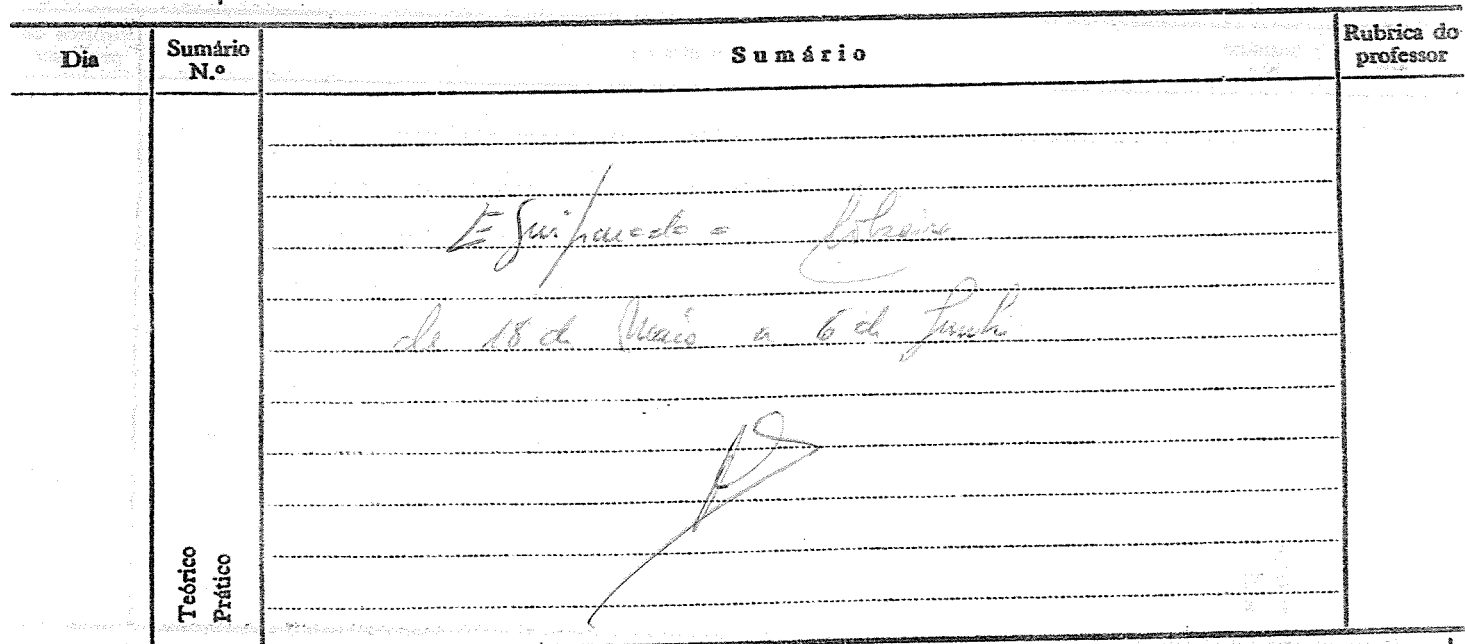 Dia
Sumário N.º
Sumário
Rubrica do professor
Equiparado a Bolseiro
de 18 de Maio a 6 de Junho
Teórico
Prático